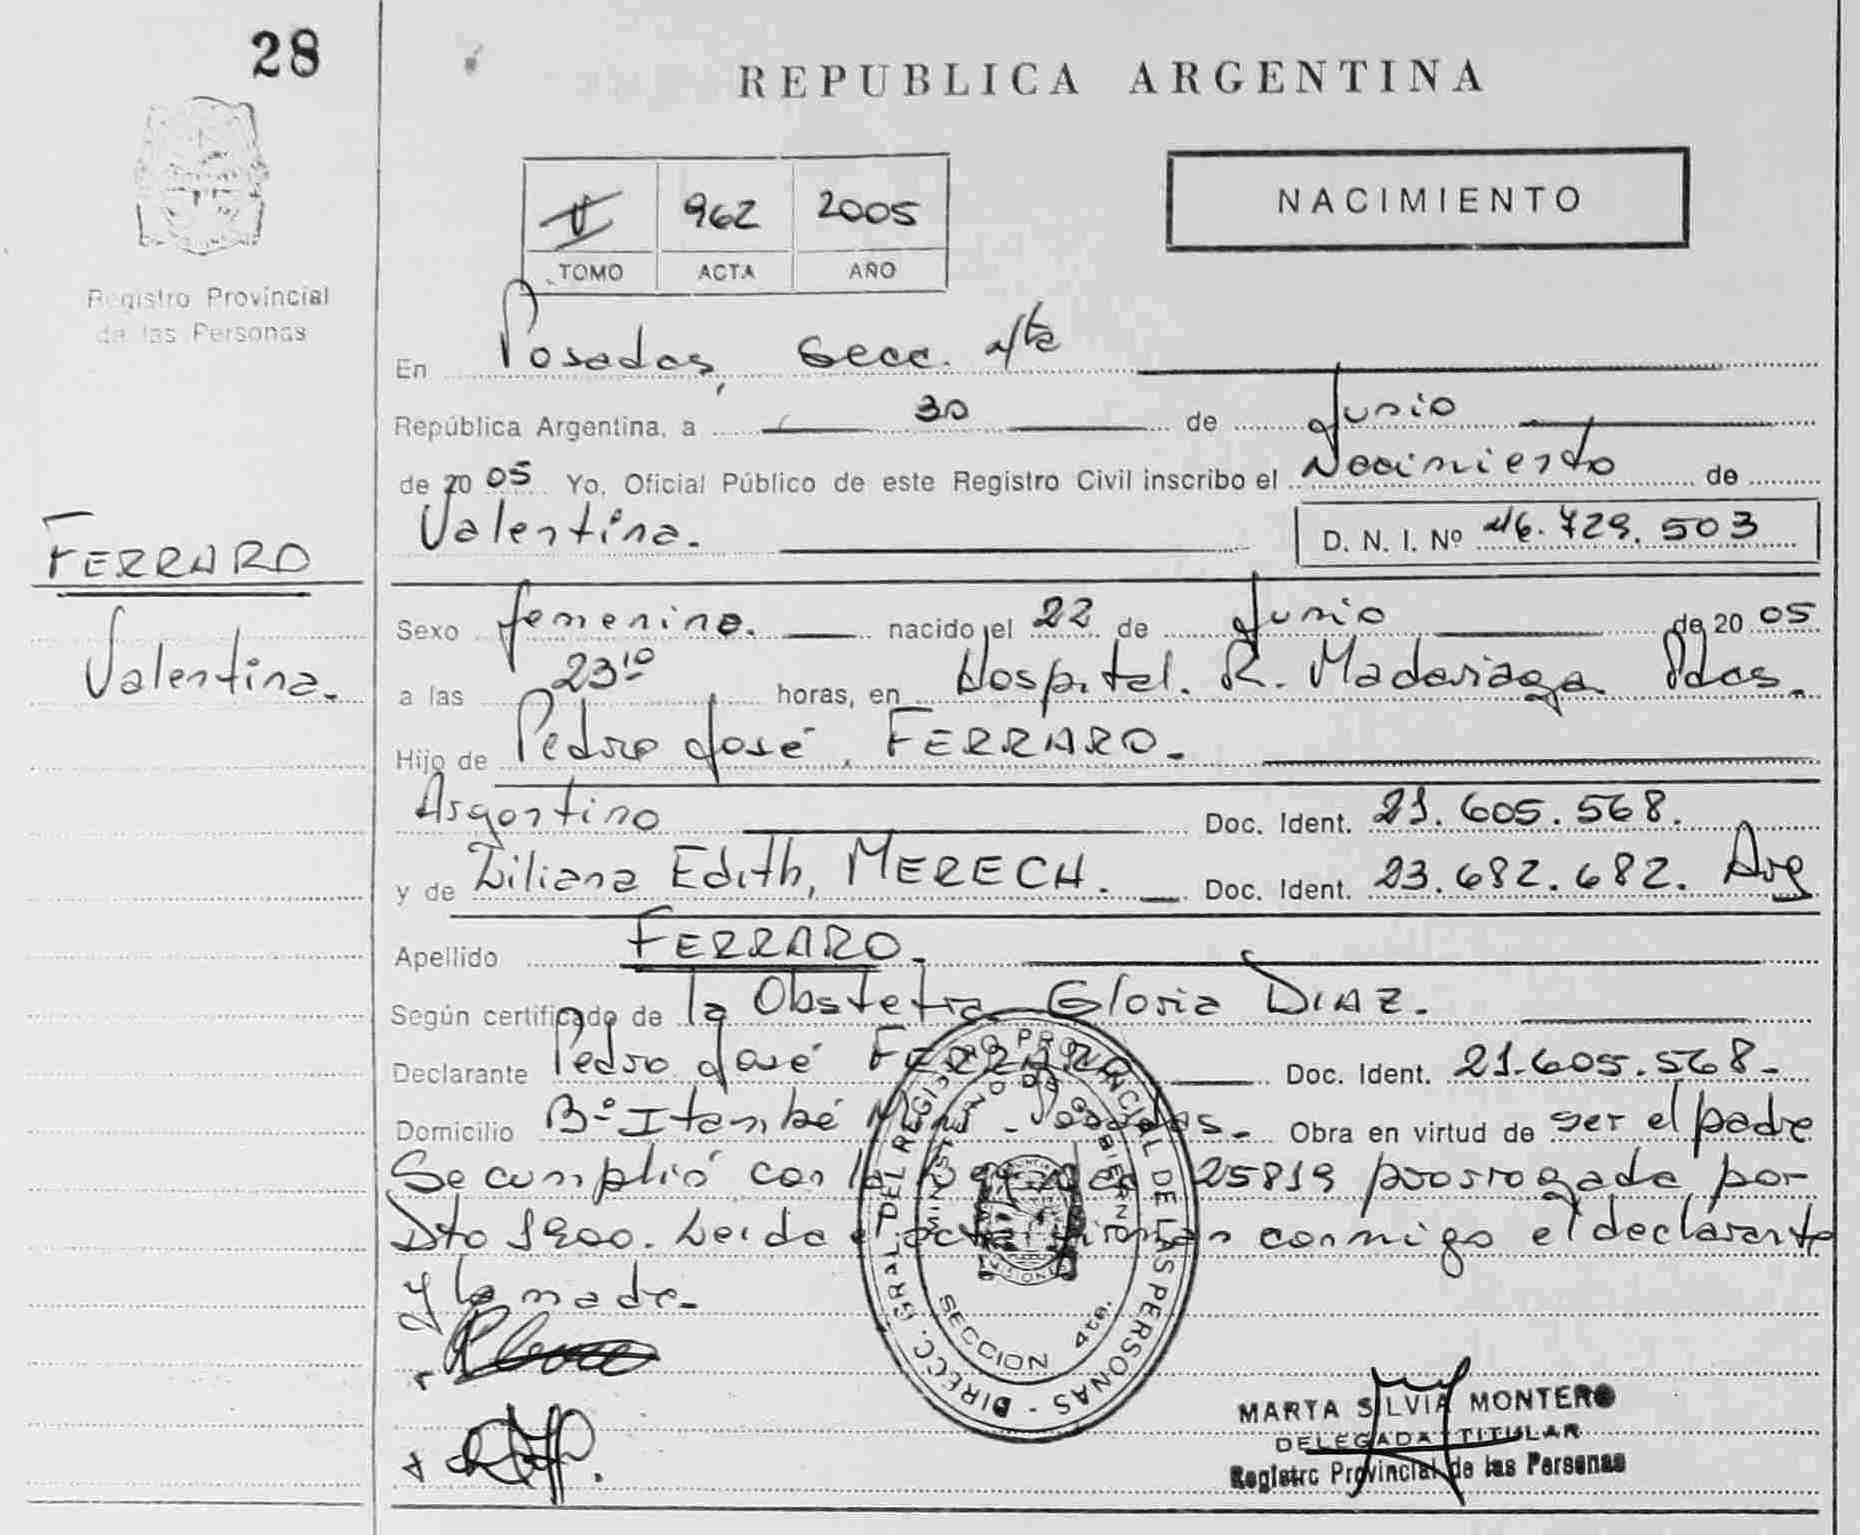 28
REPUBLICA ARGENTINA
Registro Provincial
de las Personas
NACIMIENTO
V 962 2005
TOMO ACTA AÑO
En Posadas, Secc. 4ta
República Argentina, a 30 de Junio
de 2005 Yo, Oficial Público de este Registro Civil inscribo el Nacimiento de
Valentina. D. N. I. Nº 46.729.503
FERRARO
Valentina.
Sexo femenino. nacido el 22 de Junio de 2005
a las 23¹⁰ horas, en Hospital. R. Madariaga Pdas.
Hijo de Pedro José, FERRARO.-
Argentino Doc. Ident. 21.605.568.
y de Liliana Edith, MERECH. Doc. Ident. 23.682.682. Arg
Apellido FERRARO.
Según certificado de la Obstetra Gloria DIAZ.
Declarante Pedro José FERRARO Doc. Ident. 21.605.568.-
Domicilio Bº Itambé Miní - Posadas.- Obra en virtud de ser el padre
Se cumplió con la 25819 prorrogada por
Dto 1900. Leida el acta firman conmigo el declarante
y la madre.-
DIRECC. GRAL. DEL REGISTRO PROVINCIAL DE LAS PERSONAS -
MINISTERIO DE GOBIERNO
SECCION 4ta.
MARTA SILVIA MONTERO
DELEGADA TITULAR
Registro Provincial de las Personas